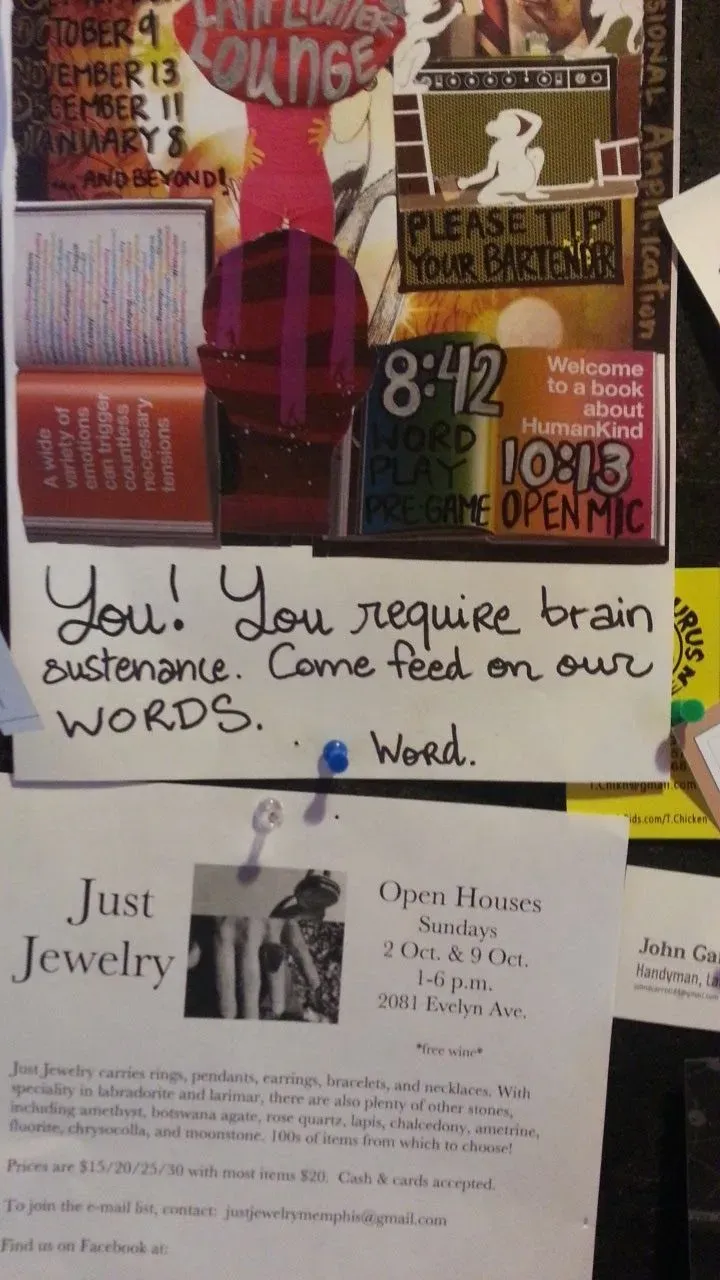 OCTOBER 9
NOVEMBER 13
DECEMBER 11
JANUARY 8
... AND BEYOND!
LAMPLIGHTER
LOUNGE
PLEASE TIP
YOUR BARTENDER
A wide
variety of
emotions
can trigger
countless
necessary
tensions
8:42
WORD
PLAY
PRE-GAME
Welcome
to a book
about
HumanKind
10:13
OPEN MIC
You! You require brain
sustenance. Come feed on our
WORDS.
Word.
Just
Jewelry
Open Houses
Sundays
2 Oct. & 9 Oct.
1-6 p.m.
2081 Evelyn Ave.
*free wine*
Just Jewelry carries rings, pendants, earrings, bracelets, and necklaces. With
speciality in labradorite and larimar, there are also plenty of other stones,
including amethyst, botswana agate, rose quartz, lapis, chalcedony, ametrine,
fluorite, chrysocolla, and moonstone. 100s of items from which to choose!
Prices are $15/20/25/30 with most items $20. Cash & cards accepted.
To join the e-mail list, contact: justjewelrymemphis@gmail.com
Find us on Facebook at:
ds.com/T.Chicken
John Ga
Handyman, La